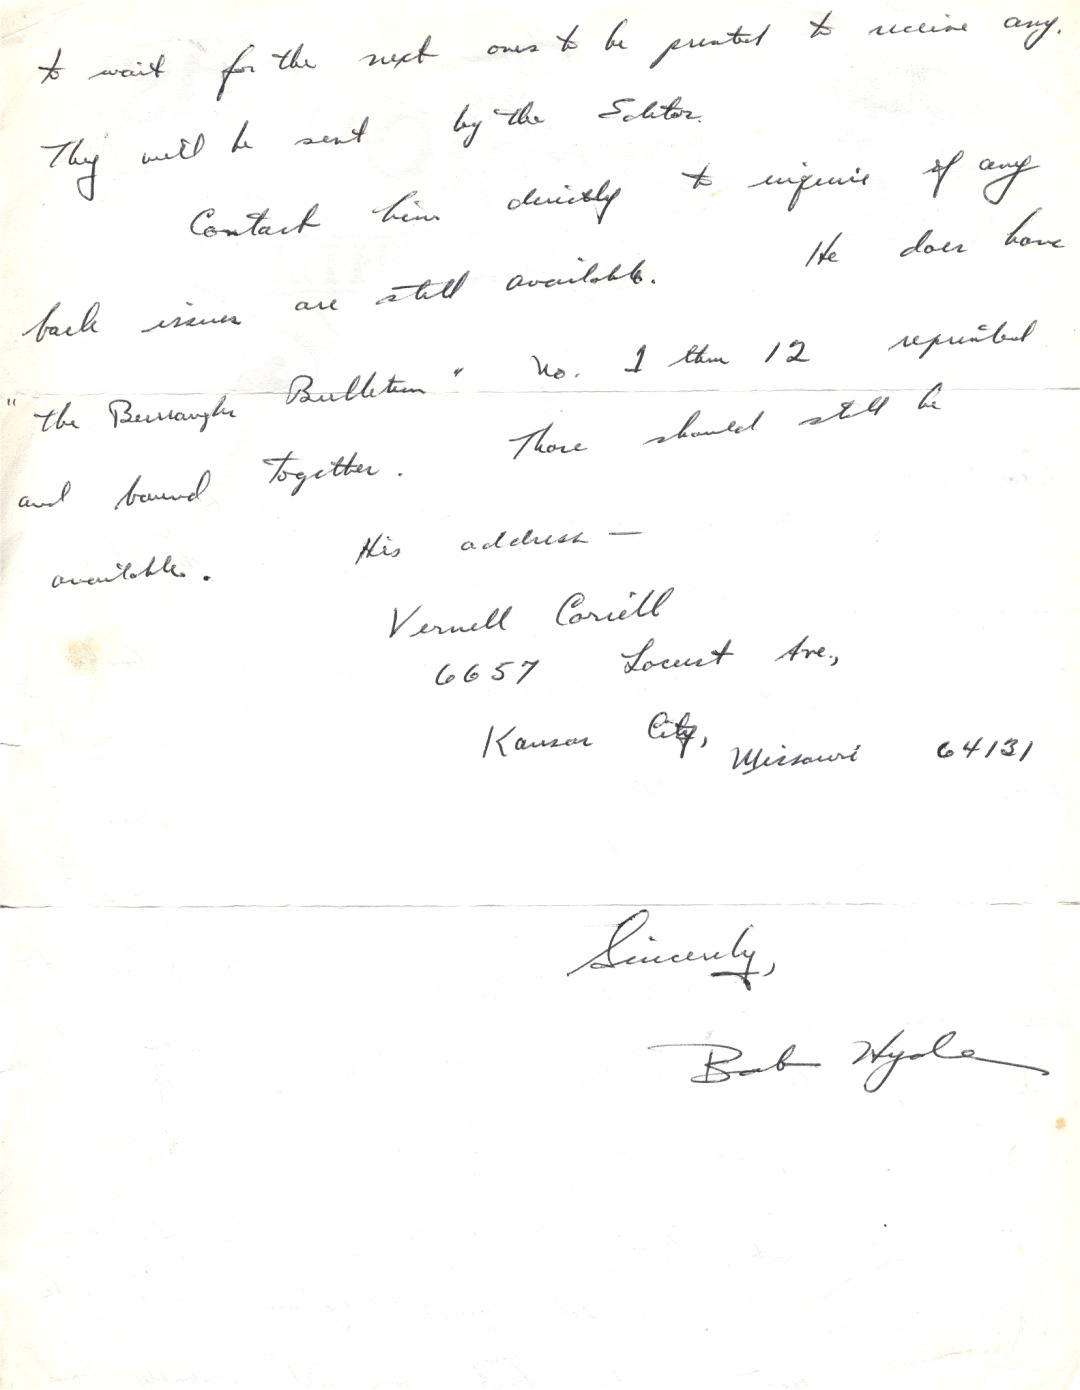 to wait for the next ones to be printed to receive any.
They will be sent by the Editor.
Contact him directly to inquire if any
back issues are still available. He does have
"The Burroughs Bulletin" No. 1 thru 12 reprinted
and bound together. Those should still be
available. His address —
Vernell Coriell
6657 Locust Ave.,
Kansas City, Missouri 64131
Sincerely,
Bob Hyde